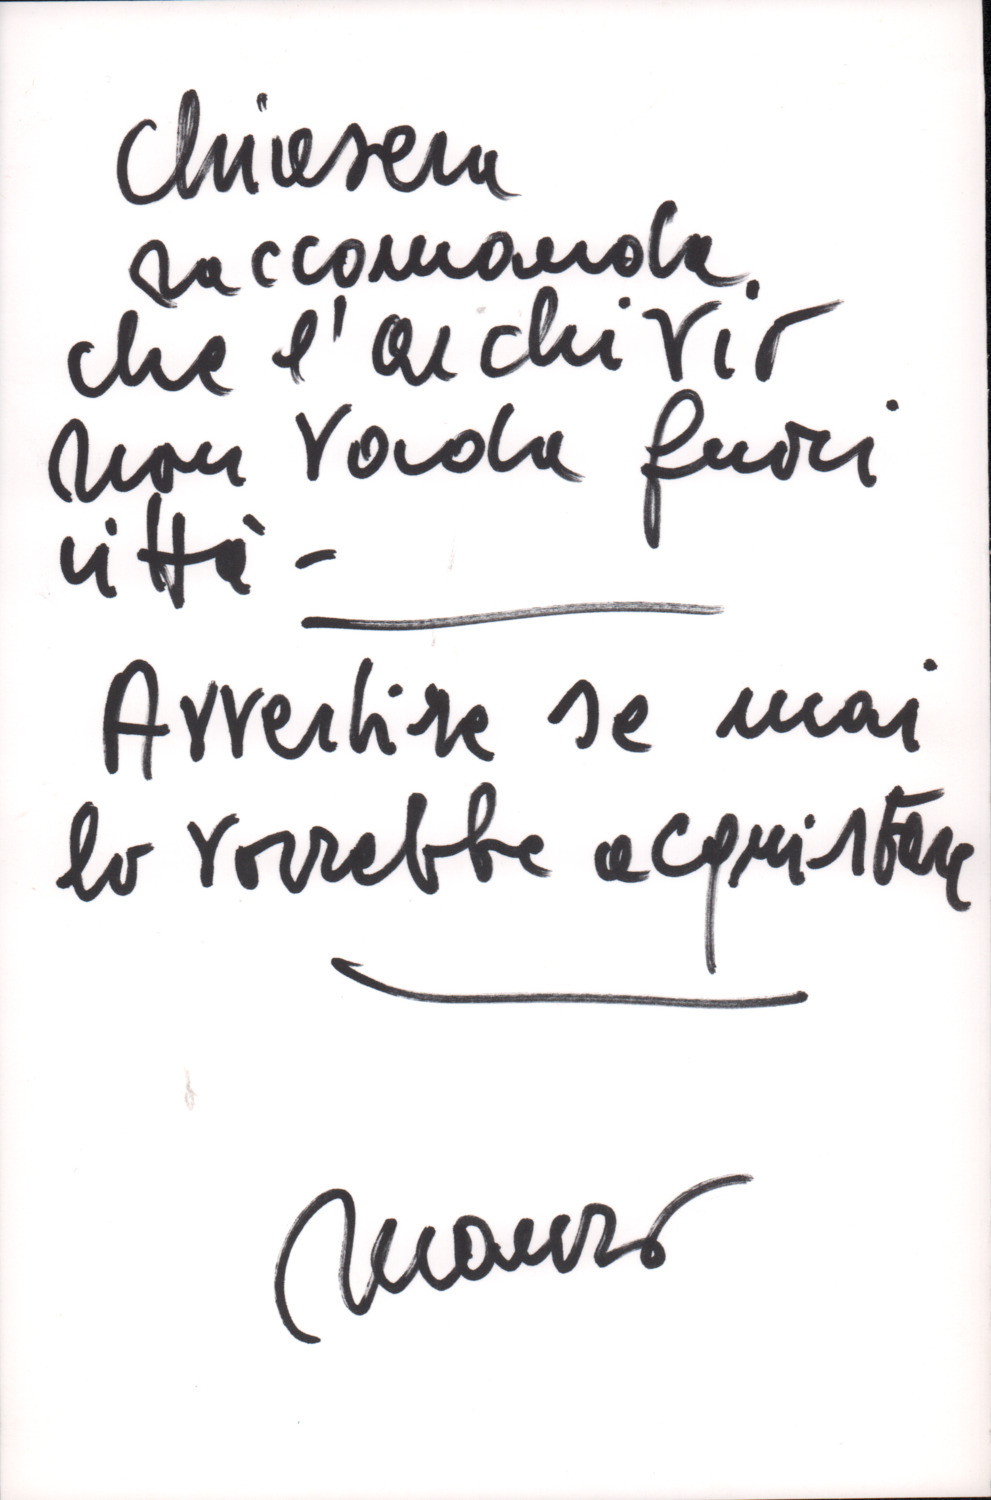 Chiesera
raccomanda
che l'archivio
non vada fuori
città -
Avvertire se mai
lo vorrebbe acquistare
Mauro